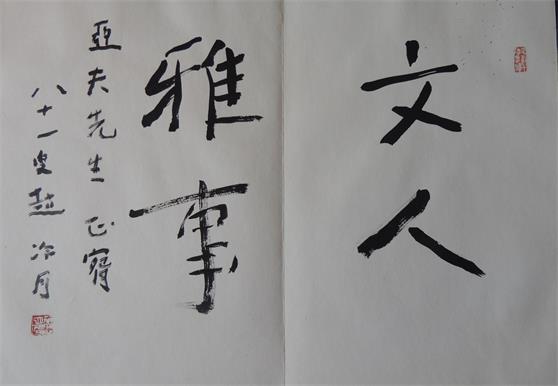 文人
雅事
亞夫先生正
八十一叟趙冷月